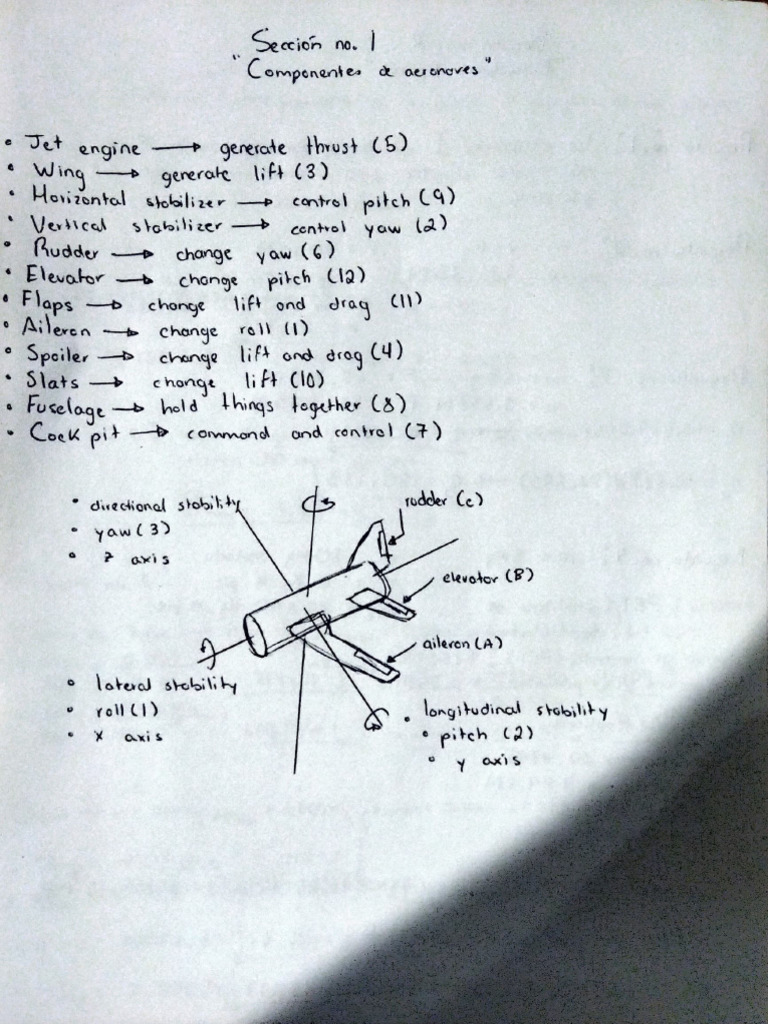 Sección no. 1
"Componentes de aeronaves"
• Jet engine → generate thrust (5)
• Wing → generate lift (3)
• Horizontal stabilizer → control pitch (9)
• Vertical stabilizer → control yaw (2)
• Rudder → change yaw (6)
• Elevator → change pitch (12)
• Flaps → change lift and drag (11)
• Aileron → change roll (1)
• Spoiler → change lift and drag (4)
• Slats → change lift (10)
• Fuselage → hold things together (8)
• Cockpit → command and control (7)
• directional stability
• yaw (3)
• z axis
rudder (c)
elevator (B)
aileron (A)
• lateral stability
• roll (1)
• x axis
• longitudinal stability
• pitch (2)
• y axis